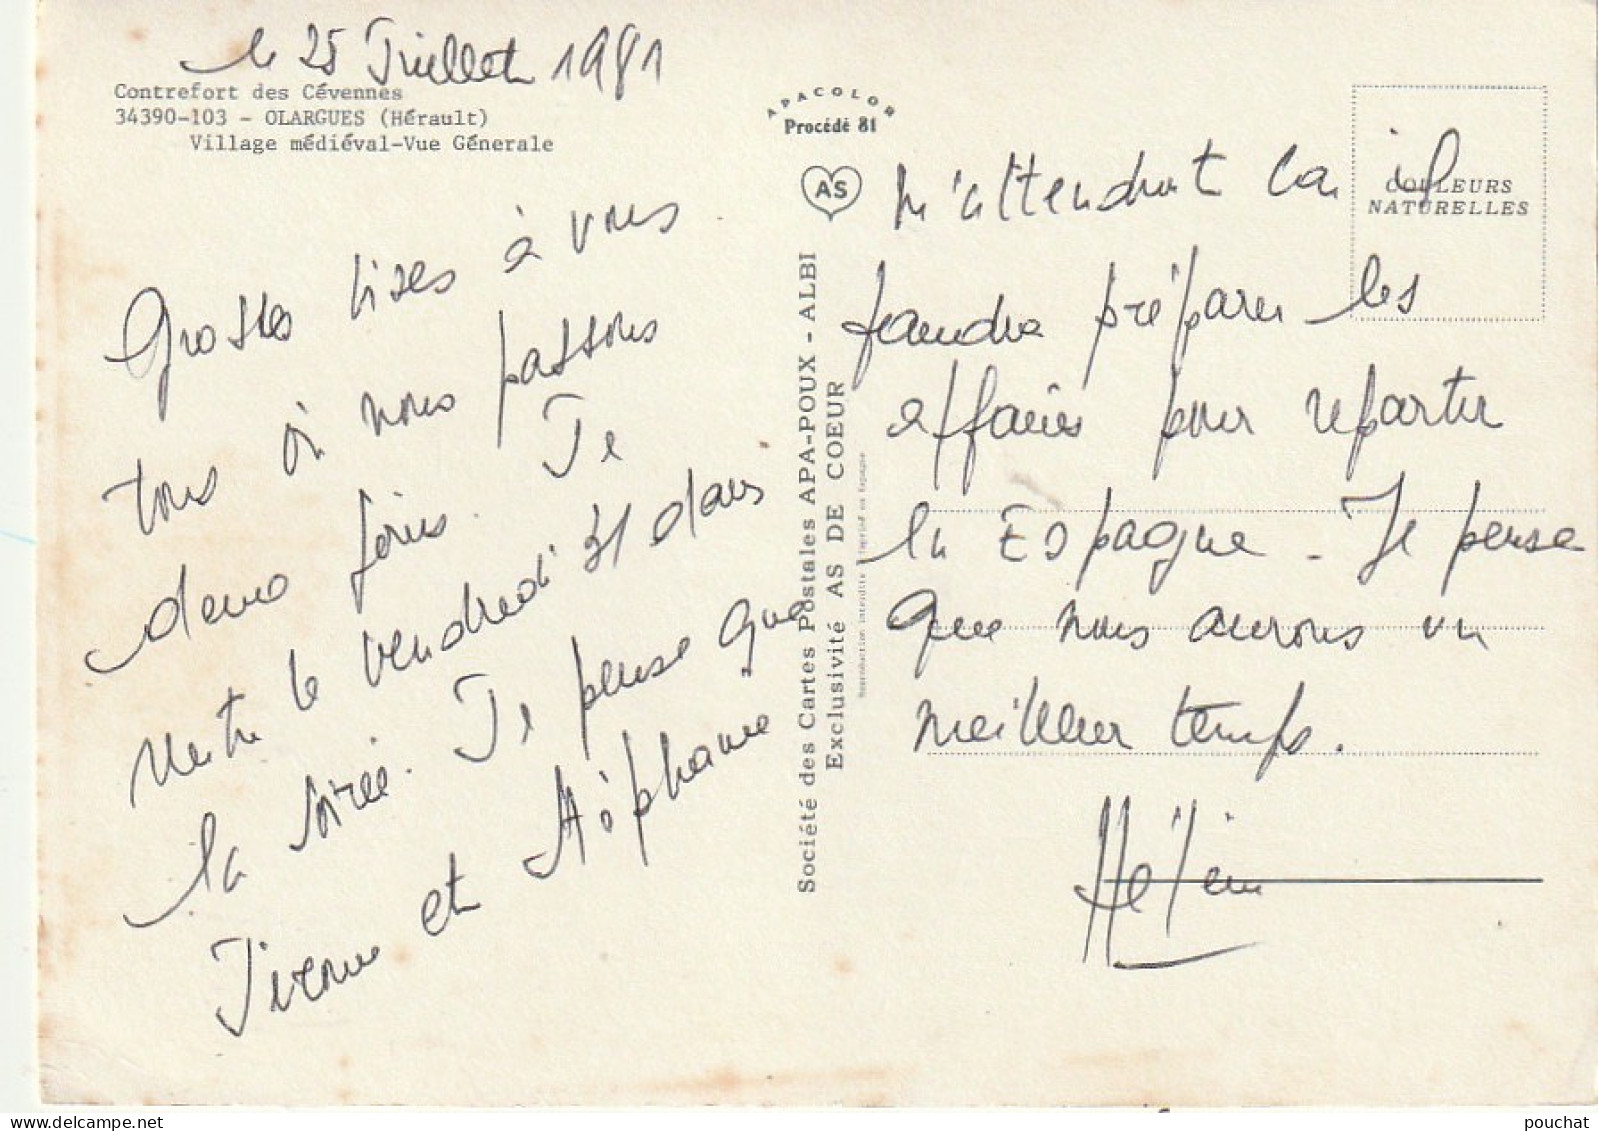 le 25 Juillet 1981
Contrefort des Cévennes
34390-103 - OLARGUES (Hérault)
Village médiéval-Vue Génerale
Grosses bises à vous
tous où nous passons
demo féries. Je
rentre le vendredi 31 dans
la soirée. Je pense que
et Stéphanie
APACOLOR
Procédé 81
AS
Société des Cartes Postales APA-POUX - ALBI
Exclusivité AS DE COEUR
Reproduction interdite Imprimé en Espagne
COULEURS
NATURELLES
m'attendront car il
faudra préparer les
affaires pour repartir
en Espagne - Je pense
que nous aurons un
meilleur temps.
pouchat